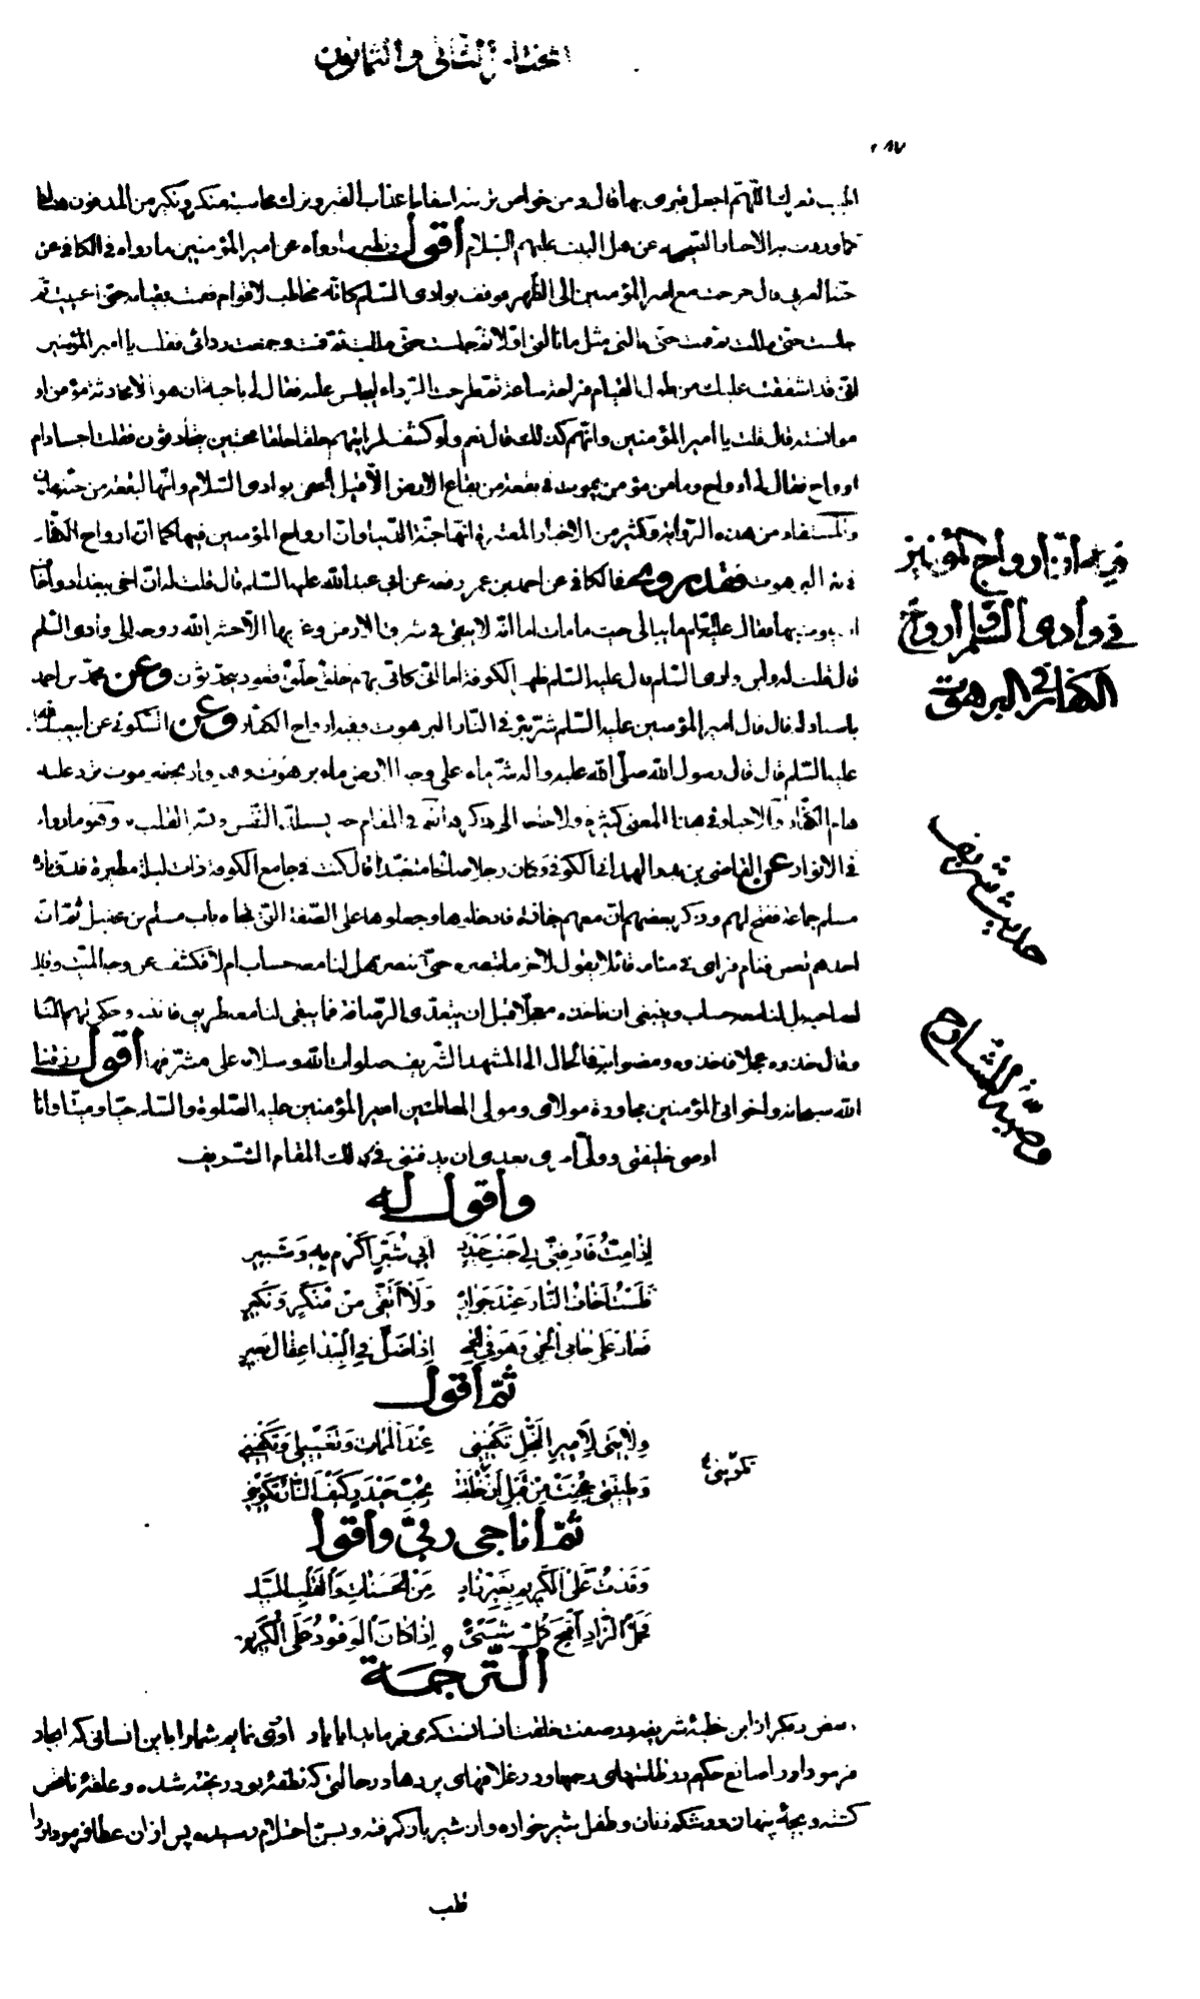 المختار الثاني والثمانون
٠٨٧
اللهم اجعل قبري بها قال ومن خواص تربته اسقاط عذاب القبر وترك محاسبة منكر ونكير من المدفون هناك
كما وردت به الاخبار الصحيحة عن اهل البيت عليهم السّلام أقول ونظير ما رواه عن امير المؤمنين ما رواه في الكافي عن
حبّة العرني قال خرجت مع امير المؤمنين الى الظّهر فوقف بوادي السّلام كانّه مخاطب لاقوام فقمت بقيامه حتّى اعييت ثمّ
جلست حتّى مللت ثمّ قمت حتّى نالني مثل ما نالني اوّلا ثمّ جلست حتّى مللت ثمّ قمت وجمعت ردائي فقلت يا امير المؤمنين
انّي قد اشفقت عليك من طول القيام فراحة ساعة ثمّ طرحت الرّداء ليجلس عليه فقال لي يا حبة ان هو الّا محادثة مؤمن او
مؤانسته قال قلت يا امير المؤمنين وانّهم كذلك قال نعم ولو كشف لك لرايتهم حلقا حلقا محتبين يتحادثون فقلت اجسادام
ارواح فقال لي ارواح وما من مؤمن يموت في بقعة من بقاع الارض الّا قيل الحقي بوادي السّلام وانّها لبقعة من جنّة
والمستفاد من هذه الرّواية وكثير من الاخبار المعتبرة انّها جنّة الدّنيا وانّ ارواح المؤمنين فيها كما انّ ارواح الكفّار
في برهوت فقد روى في الكافي عن احمد بن عمر رفعه عن ابي عبد الله عليه السّلم قال قلت له انّ اخي ببغداد واخاف
ان يموت بها فقال ما تبالي حيث ما مات اما انّه لا يبقى في شرق الارض وغربها الّا حشر الله روحه الى وادي السّلم
قال قلت له واين وادي السّلم قال عليه السّلم ظهر الكوفة اما انّي كانّي بهم حلق حلق قعود يتحدّثون وعن محمّد بن احمد
باسناد له قال قال امير المؤمنين عليه السّلم شرّ بئر في النّار البرهوت وفيه ارواح الكفّار وعن السّكوني عن ابيعبد الله
عليه السّلم قال قال رسول الله صلّى الله عليه واله شرّ ماء على وجه الارض ماء برهوت وهو واد بحضرموت ترد عليه
هام الكفّار والاخبار في هذا المعنى كثيرة ولا حاجة الى ذكرها
في الانوار عن القاضي بن الهمداني الكوفي وكان رجلا صالحا متعبّدا قال كنت في جامع الكوفة ذات ليلة مطيرة فدقّ باب
مسلم جماعة ففتح لهم وذكر بعضهم انّ معهم جنازة فادخلوها وجعلوها على الصّفة التي تجاه باب مسلم بن عقيل ثمّ انّ
احدهم نعس فنام فراى في منامه قائلا يقول لاخر ما تبصره حتّى نبصر هل لنا معه حساب ام لا فكشف عن وجه الميّت وقال
لصاحبه بل لنا معه حساب وينبغي ان ناخذه معجّلا قبل ان يتعدّى الرّصافة فما يبقى لنا معه طريق فانتبه وحكى لهم المنام
وقال خذوه عجلا فاخذوه ومضوا به في الحال الى المشهد الشّريف صلوات الله وسلامه على مشرّفها أقول رزقنا
الله سبحانه واخواني المؤمنين مجاورة مولاي ومولى العالمين امير المؤمنين عليه الصّلوة والسّلم حيّا وميّتا وانا
اوصي خليفتي ووليّ امري بعدي ان يدفنني في ذلك المقام الشّريف
وأقول له
إذا متّ فادفنّي إلى جنب حيدر أبي شبّر أكرم به وشبير
فلست أخاف النّار عند جواره ولا أتّقي من منكر ونكير
فعار على حامي الحمى وهو في الحمى إذا ضلّ في البيدا عقال بعير
ثمّ أقول
ولايتي لأمير النّحل تكفيني عند الممات وتغسيلي وتكفيني
وطينتي عجنت من قبل تكويني بحبّ حيدر كيف النّار تكويني
ثمّ أناجي ربّي وأقول
وفدت على الكريم بغير زاد من الحسنات والقلب السّليم
فحمل الزّاد أقبح كلّ شيء إذا كان الوفود على الكريم
التّرجمة
بعض ديكر از اين خطبهٔ شريفه در صفت خلقت انسانست كه مى فرمايد ايا ياد اورى نمايم شما را باين انسانى كه ايجاد
فرمود او را صانع حكيم در ظلمتهاى رحمها ودر غلافهاى پردها در حالتى كه نطفهٔ بود ريخته شده وعلقهٔ ناقص
كشته وبچهٔ پنهان در شكم زنان وطفل شير خواره واز شير باز گرفته وبسنّ احتلام رسيده پس از ان عطا فرمود او را
قلب
في بيان أنّ أرواح المؤمنين
في وادي السّلم وأرواح
الكفّار في البرهوت
حديث شريف
وصيّة الشّارح
تكويني